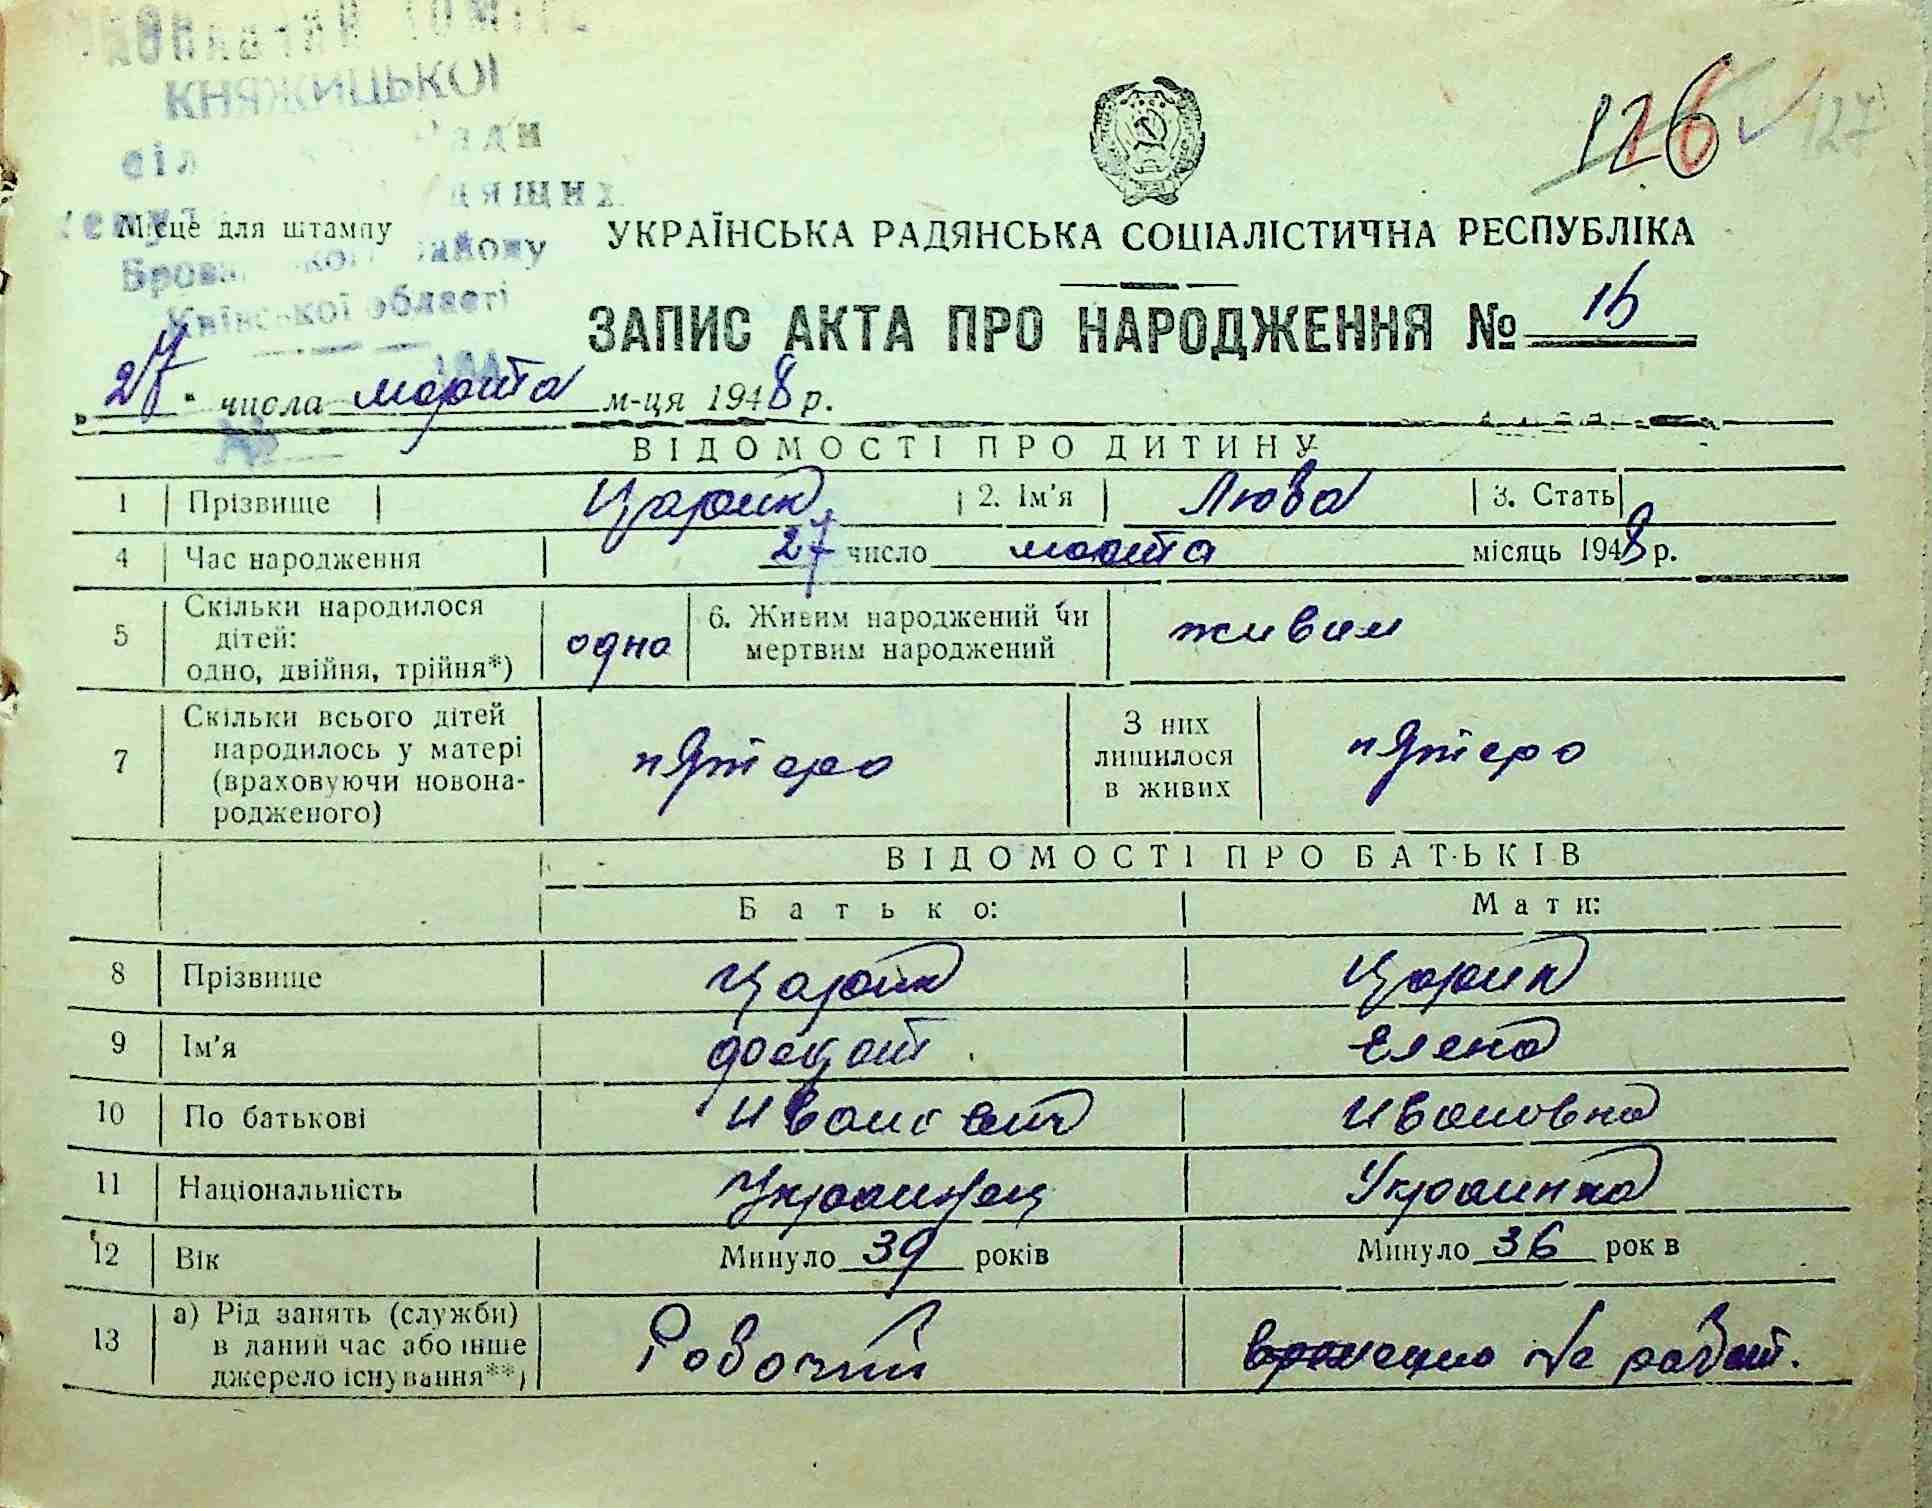 КНЯЖИЦЬКОЇ
126 127
Місце для штампу
Київської області
УКРАЇНСЬКА РАДЯНСЬКА СОЦІАЛІСТИЧНА РЕСПУБЛІКА
ЗАПИС АКТА ПРО НАРОДЖЕННЯ № 16
„27" числа марта м-ця 1948 р.
ВІДОМОСТІ ПРО ДИТИНУ
1 Прізвище Царик 2. Ім'я Люба 3. Стать
4 Час народження 27 число марта місяць 1948 р.
5 Скільки народилося дітей: одно, двійня, трійня*) одно 6. Живим народжений чи мертвим народжений живим
7 Скільки всього дітей народилось у матері (враховуючи новонародженого) пятеро З них лишилося в живих пятеро
ВІДОМОСТІ ПРО БАТЬКІВ
Батько: Мати:
8 Прізвище Царик Царик
9 Ім'я Елена
10 По батькові Иванович Ивановна
11 Національність Украинец Украинка
12 Вік Минуло 39 років Минуло 36 рок в
13 а) Рід занять (служби) в даний час або інше джерело існування**) Робочий временно не работ.